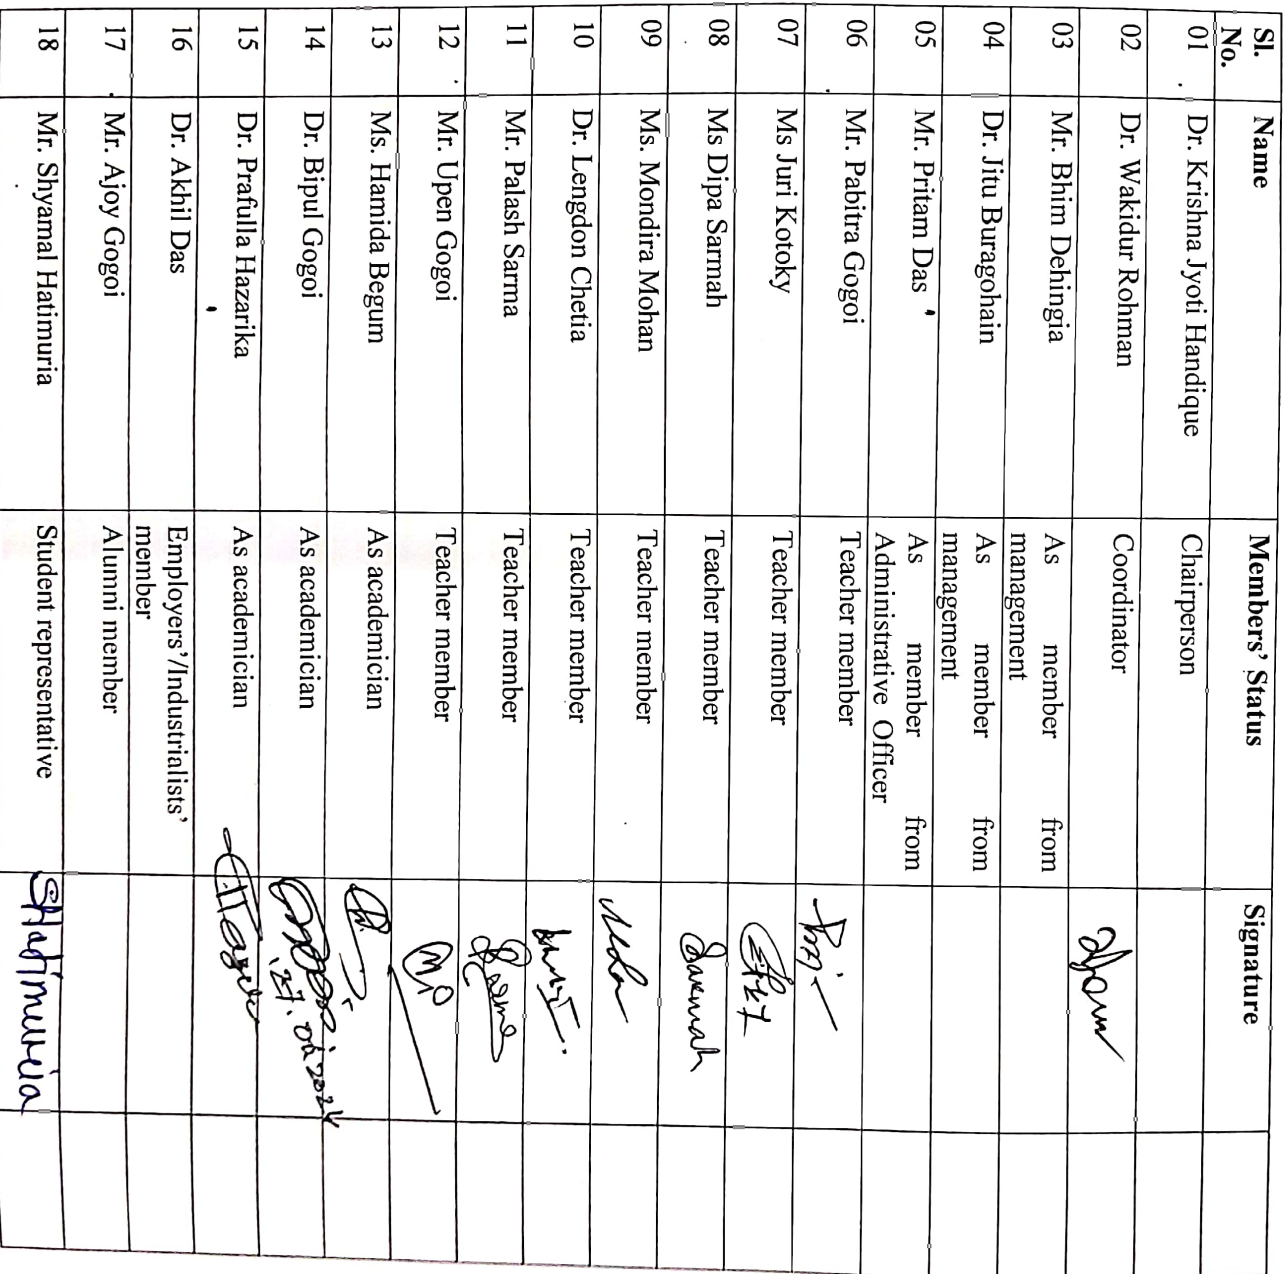 Sl. No. Name Members' Status Signature
01 Dr. Krishna Jyoti Handique Chairperson
02 Dr. Wakidur Rohman Coordinator
03 Mr. Bhim Dehingia As member from
management
04 Dr. Jitu Buragohain As member from
management
05 Mr. Pritam Das As member from
Administrative Officer
06 Mr. Pabitra Gogoi Teacher member
07 Ms Juri Kotoky Teacher member
08 Ms Dipa Sarmah Teacher member Sarmah
09 Ms. Mondira Mohan Teacher member
10 Dr. Lengdon Chetia Teacher member
11 Mr. Palash Sarma Teacher member Sarma
12 Mr. Upen Gogoi Teacher member
13 Ms. Hamida Begum As academician
14 Dr. Bipul Gogoi As academician
15 Dr. Prafulla Hazarika As academician
16 Dr. Akhil Das Employers'/Industrialists'
member
17 Mr. Ajoy Gogoi Alumni member
18 Mr. Shyamal Hatimuria Student representative SHatimuria